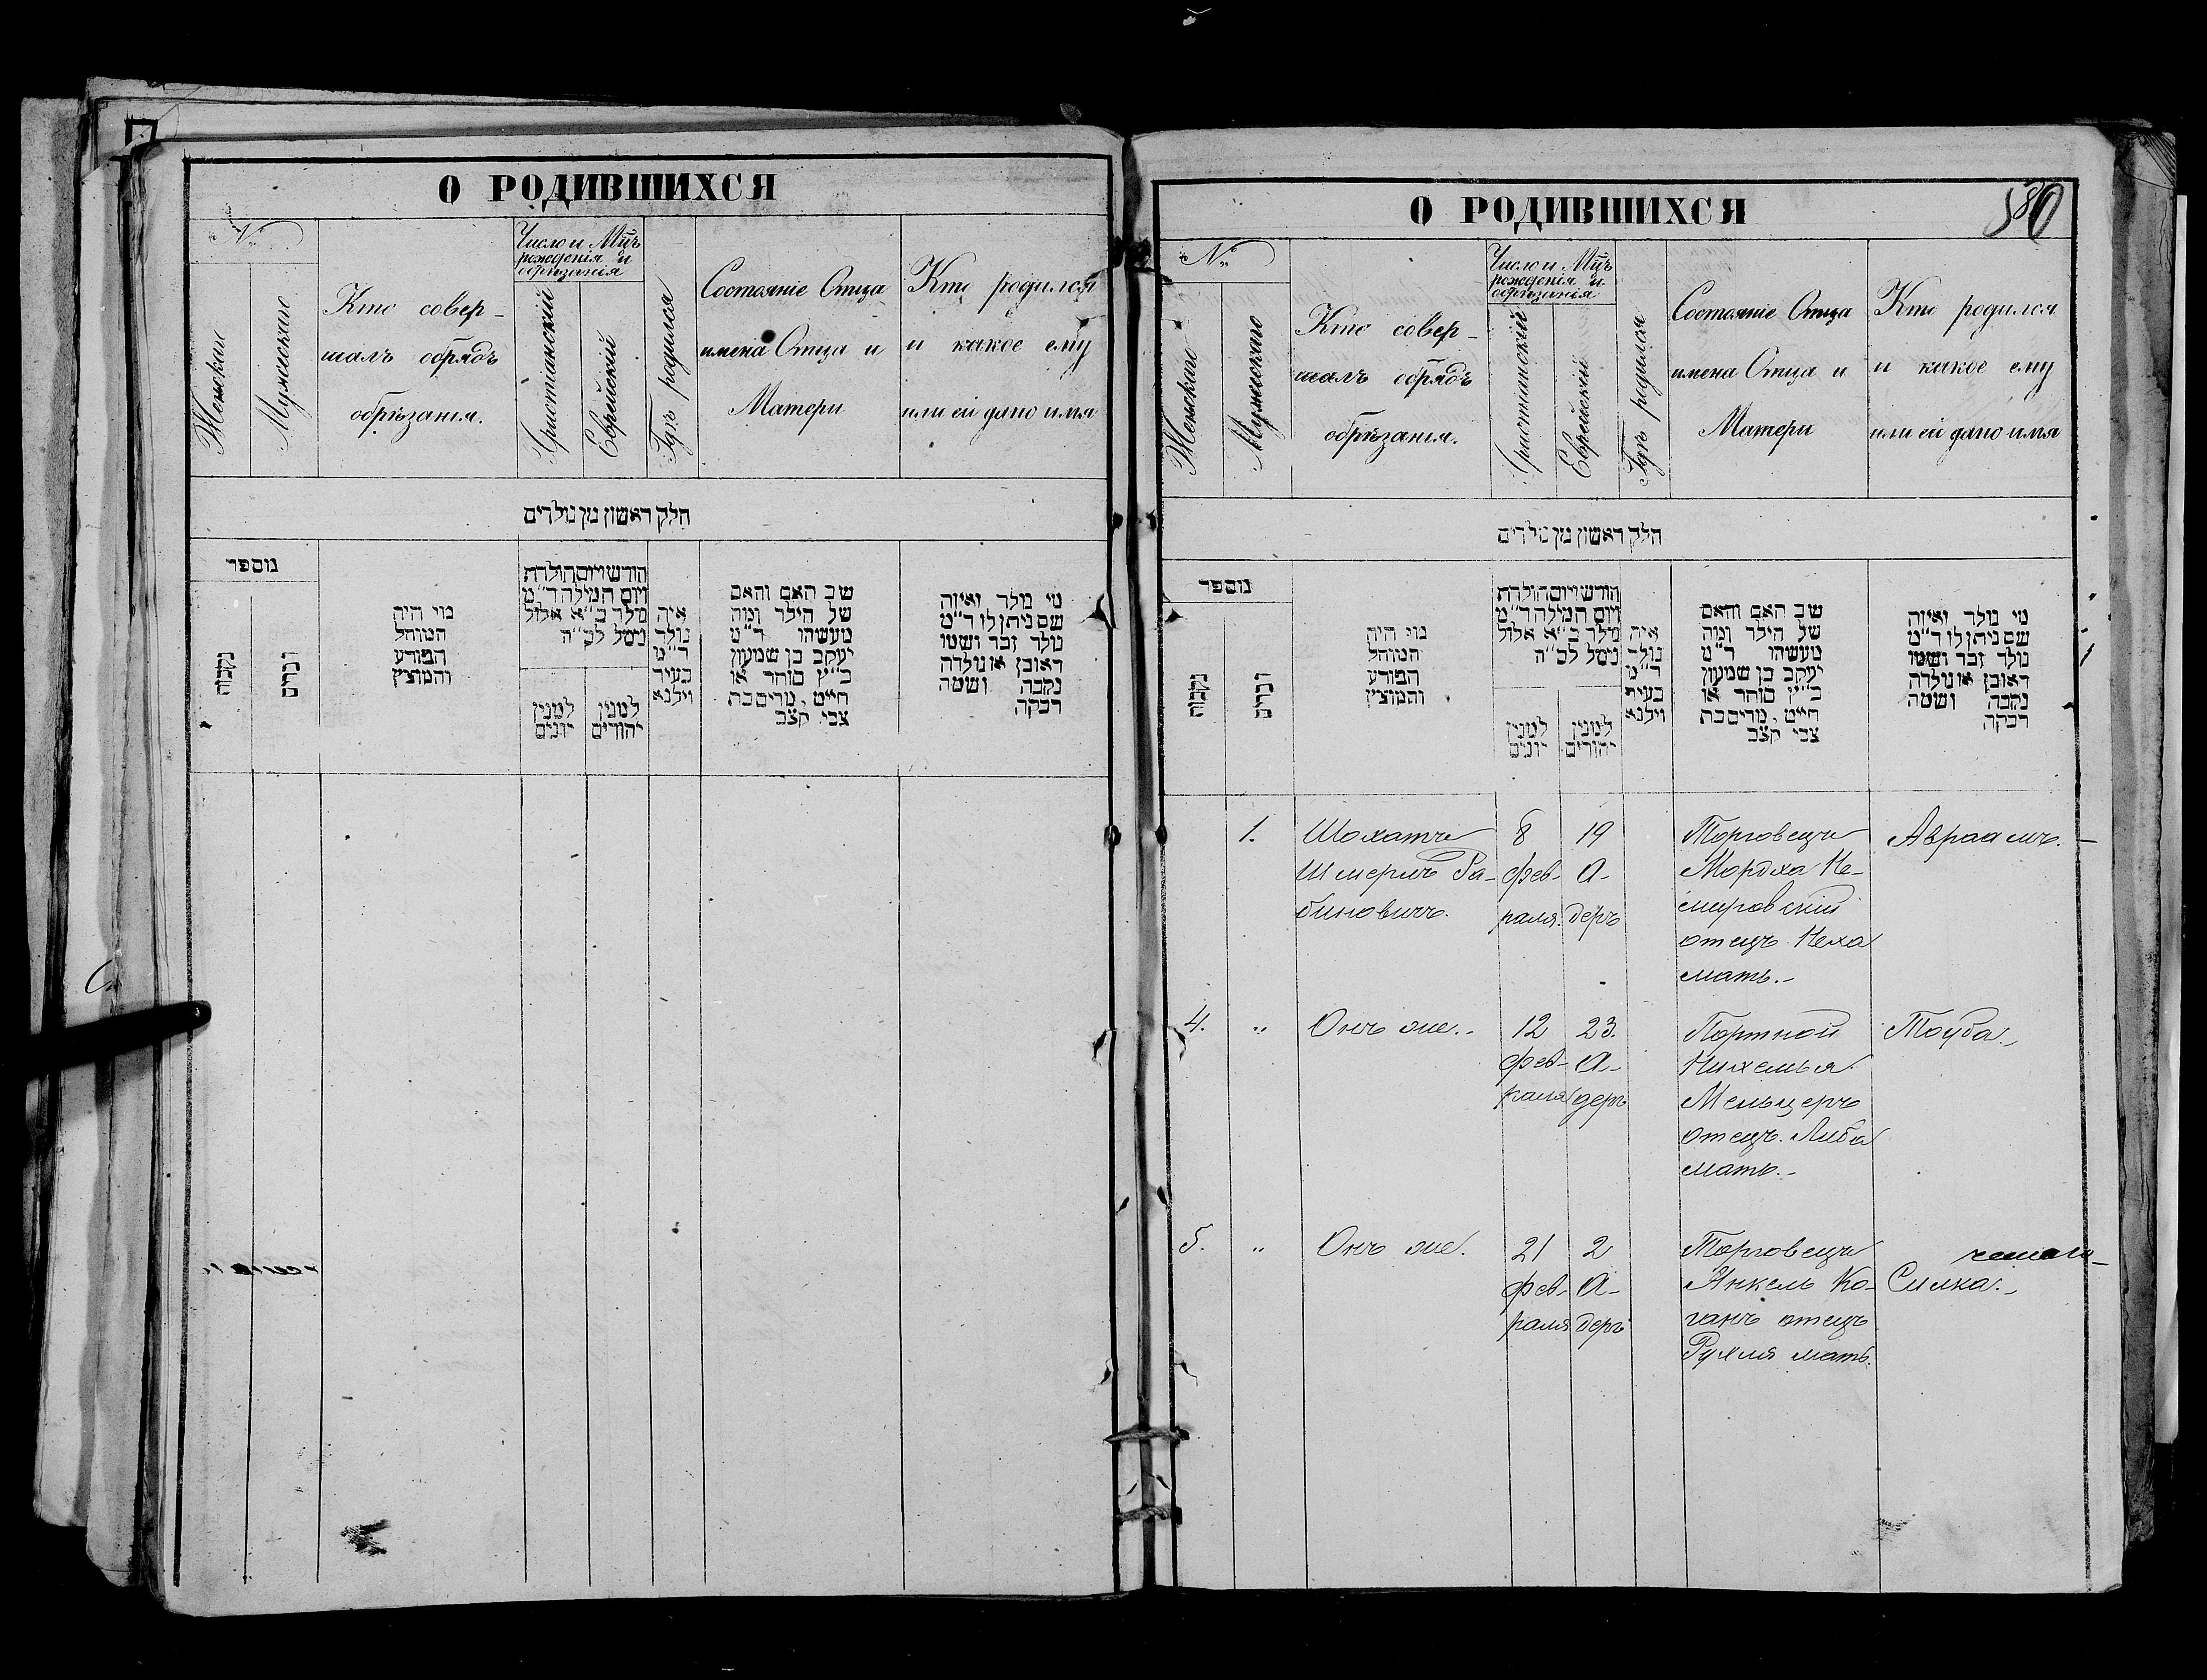 О РОДИВШИХСЯ
№
Женскаго
Мужескаго
Кто совер-
шалъ обрядъ
обрѣзанія.
Число и Мц̃ъ
рожденія и
обрѣзанія
Христіанскій
Еврейскій
Гдѣ родился
Состояніе Отца
имена Отца и
Матери
Кто родился
и какое ему
или ей дано имя
חלק ראשון מן נולדים
מוספר
נקבות
זכרים
מי היה
המוהל
הפורע
והמוצץ
חודש ויום הולדת
ויום המילה ד״מ
נולד כ״א אלול
נימל לס״ה
למנין
יונים
למנין
יהודים
איה
נולד
ד״מ
בעיר
וילנא
שב האם והאם
של הילד ומה
מעשהו ד״מ
יעקב בן שמעון
כ״ץ סוחר או
חייט, מרים בת
צבי קצב
מי נולד ואיזה
שם ניתן לו ד״מ
נולד זכר ושמו
ראובן או נולדה
נקבה ושמה
רבקה
О РОДИВШИХСЯ
580
№
Женскаго
Мужескаго
Кто совер-
шалъ обрядъ
обрѣзанія.
Число и Мц̃ъ
рожденія и
обрѣзанія
Христіанскій
Еврейскій
Гдѣ родился
Состояніе Отца
имена Отца и
Матери
Кто родился
и какое ему
или ей дано имя
חלק ראשון מן נולדים
מוספר
נקבות
זכרים
מי היה
המוהל
הפורע
והמוצץ
חודש ויום הולדת
ויום המילה ד״מ
נולד כ״א אלול
נימל לס״ה
למנין
יונים
למנין
יהודים
איה
נולד
ד״מ
בעיר
וילנא
שב האם והאם
של הילד ומה
מעשהו ד״מ
יעקב בן שמעון
כ״ץ סוחר או
חייט, מרים בת
צבי קצב
מי נולד ואיזה
שם ניתן לו ד״מ
נולד זכר ושמו
ראובן או נולדה
נקבה ושמה
רבקה
1. Шохатъ 8 19 Торговецъ Авраамъ.
Шмерлъ Ра- фев- А- Мордха Не-
биновичъ. раля. деръ мировскій
отецъ Неха
мать.-
4. " Онъ же. 12 23. Портной Тоуба.
фев- А- Нихемья
раля деръ Мельцеръ
отецъ. Либа
мать.-
5. " Онъ же. 21 2 Торговецъ
фев- А- Янкель Ко- Симка.
раля деръ ганъ отецъ
Рухля мать.